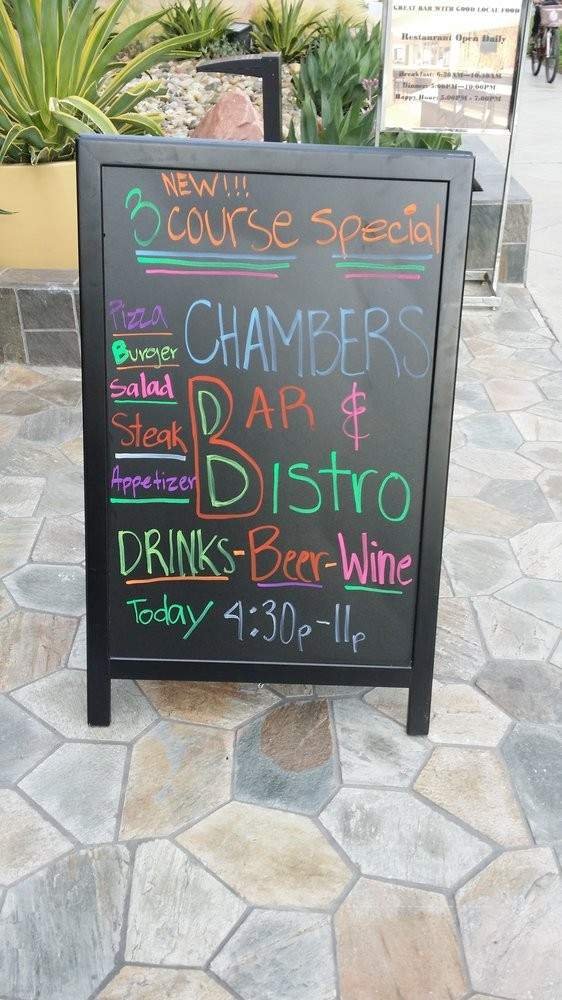 GREAT BAR WITH GOOD LOCAL FOOD
Restaurant Open Daily
Breakfast: 6:30AM—10:30AM
Dinner: 5:00PM—10:00PM
Happy Hour: 5:00PM - 7:00PM
NEW!!!
3 course special
Pizza
Burger
Salad
Steak
Appetizer
CHAMBERS
BAR &
BISTRO
DRINKS-Beer-Wine
Today 4:30p-11p